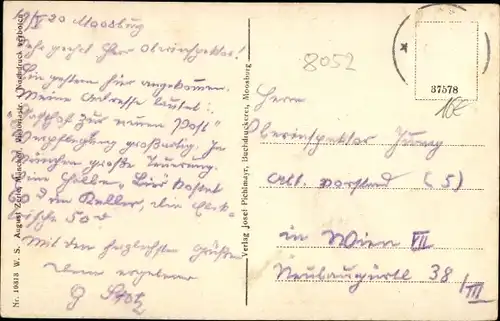 20 Moosburg
Sehr geehrt Herr Oberinspektor!
Bin gestern hier angekommen.
Meine Adresse lautet:
"Gasthof zur neuen Post"
Verpflegung großartig. In
München große Teuerung.
Eine Helles Bier kostet
60 d im Keller, die Elek-
trische 50 d
Mit den herzlichsten Grüßen
Ihr ergebener
Nr. 10313 W. S. August Zerle, München, Nachdruck verboten
Verlag Josef Pichlmayr, Buchdruckerei, Moosburg
8052
37578
10E
Herrn
Oberinspektor
Abt. Vorstand (5)
in Wien VII
Neubaugürtl 38/
III